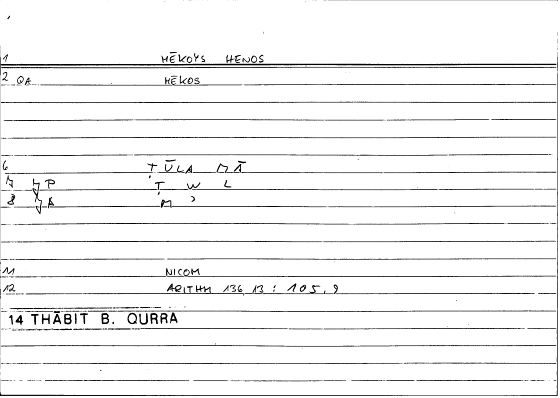 1 MĒKOYS HENOS
2 QA MĒKOS
6 ṬŪLA MĀ
7 P Ṭ W L
8 A M ʾ
11 NICOM
12 ARITHM 136,13 : 105,9
14 THĀBIT B. QURRA